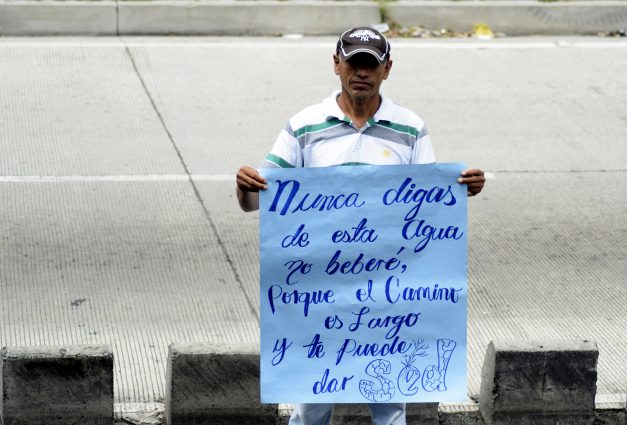 Nunca digas
de esta Agua
no beberé,
Porque el Camino
es Largo
y te Puede
dar Sed